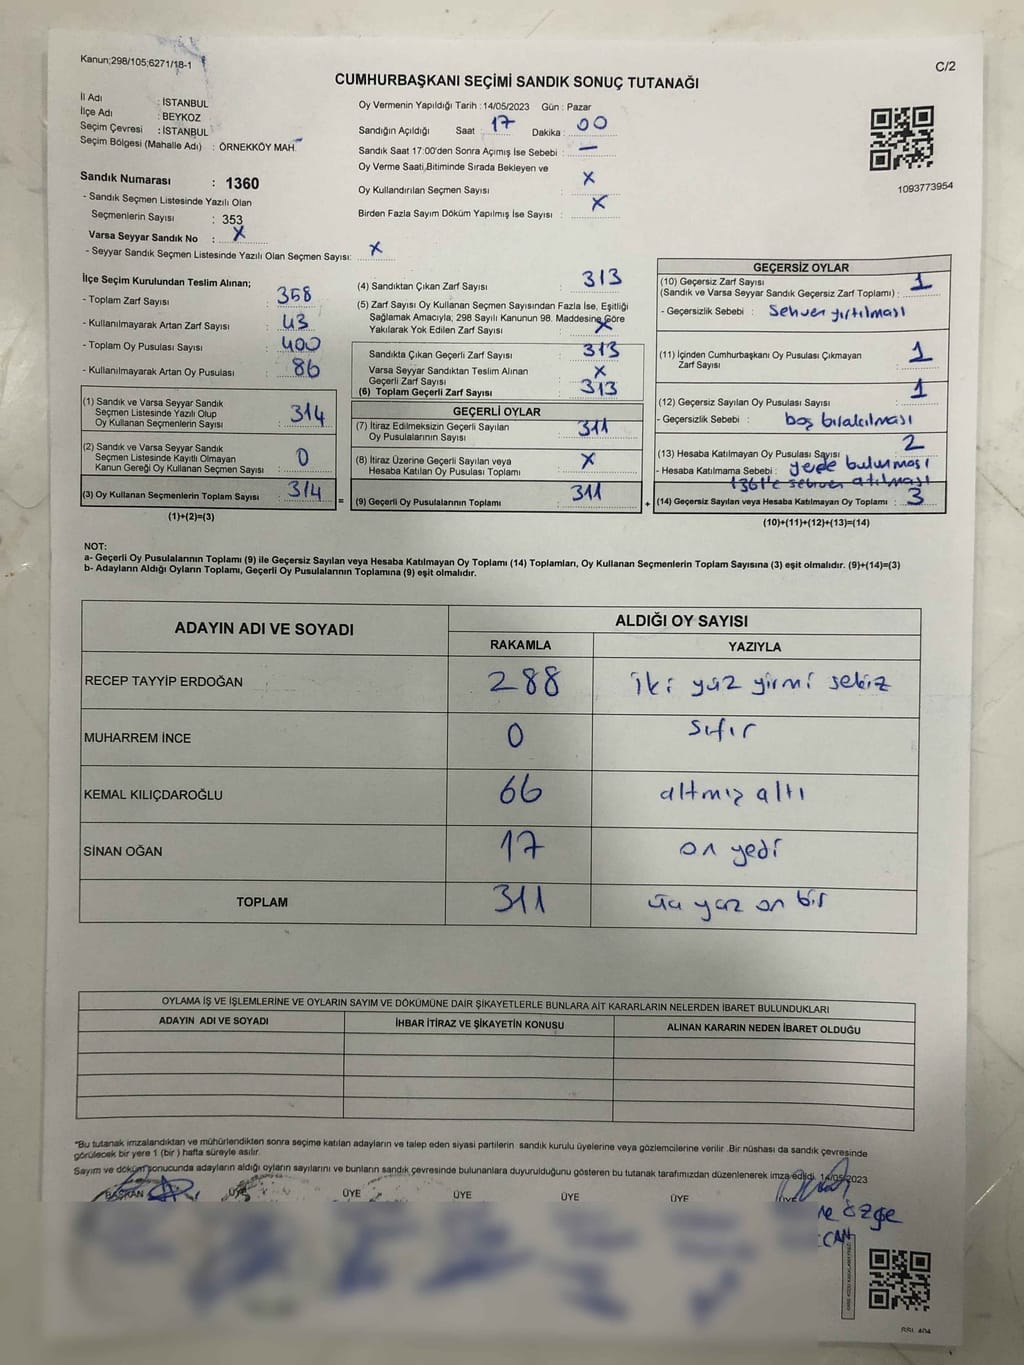 Kanun;298/105;6271/18-1
C/2
CUMHURBAŞKANI SEÇİMİ SANDIK SONUÇ TUTANAĞI
İl Adı : İSTANBUL
İlçe Adı : BEYKOZ
Seçim Çevresi : İSTANBUL
Seçim Bölgesi (Mahalle Adı) : ÖRNEKKÖY MAH.
Sandık Numarası : 1360
- Sandık Seçmen Listesinde Yazılı Olan
Seçmenlerin Sayısı : 353
Varsa Seyyar Sandık No : X
- Seyyar Sandık Seçmen Listesinde Yazılı Olan Seçmen Sayısı: X
Oy Vermenin Yapıldığı Tarih : 14/05/2023 Gün : Pazar
Sandığın Açıldığı Saat : 17 Dakika : 00
Sandık Saat 17:00'den Sonra Açımış İse Sebebi : —
Oy Verme Saati Bitiminde Sırada Bekleyen ve
Oy Kullandırılan Seçmen Sayısı : X
Birden Fazla Sayım Döküm Yapılmış İse Sayısı : X
1093773954
İlçe Seçim Kurulundan Teslim Alınan;
- Toplam Zarf Sayısı : 358
- Kullanılmayarak Artan Zarf Sayısı : 43
- Toplam Oy Pusulası Sayısı : 400
- Kullanılmayarak Artan Oy Pusulası : 86
(1) Sandık ve Varsa Seyyar Sandık
Seçmen Listesinde Yazılı Olup
Oy Kullanan Seçmenlerin Sayısı : 314
(2) Sandık ve Varsa Seyyar Sandık
Seçmen Listesinde Kayıtlı Olmayan
Kanun Gereği Oy Kullanan Seçmen Sayısı : 0
(3) Oy Kullanan Seçmenlerin Toplam Sayısı : 314
(1)+(2)=(3)
(4) Sandıktan Çıkan Zarf Sayısı : 313
(5) Zarf Sayısı Oy Kullanan Seçmen Sayısından Fazla İse, Eşitliği
Sağlamak Amacıyla, 298 Sayılı Kanunun 98. Maddesine Göre
Yakılarak Yok Edilen Zarf Sayısı : X
Sandıkta Çıkan Geçerli Zarf Sayısı : 313
Varsa Seyyar Sandıktan Teslim Alınan
Geçerli Zarf Sayısı : X
(6) Toplam Geçerli Zarf Sayısı : 313
GEÇERLİ OYLAR
(7) İtiraz Edilmeksizin Geçerli Sayılan
Oy Pusulalarının Sayısı : 311
(8) İtiraz Üzerine Geçerli Sayılan veya
Hesaba Katılan Oy Pusulası Toplamı : X
= (9) Geçerli Oy Pusulalarının Toplamı : 311 +
GEÇERSİZ OYLAR
(10) Geçersiz Zarf Sayısı
(Sandık ve Varsa Seyyar Sandık Geçersiz Zarf Toplamı) : 1
- Geçersizlik Sebebi : Sehven yırtılması
(11) İçinden Cumhurbaşkanı Oy Pusulası Çıkmayan
Zarf Sayısı : 1
(12) Geçersiz Sayılan Oy Pusulası Sayısı : 1
- Geçersizlik Sebebi : boş bırakılması
(13) Hesaba Katılmayan Oy Pusulası Sayısı : 2
- Hesaba Katılmama Sebebi : yerde bulunması
1361'e sehven atılması
(14) Geçersiz Sayılan veya Hesaba Katılmayan Oy Toplamı : 3
(10)+(11)+(12)+(13)=(14)
NOT:
a- Geçerli Oy Pusulalarının Toplamı (9) ile Geçersiz Sayılan veya Hesaba Katılmayan Oy Toplamı (14) Toplamları, Oy Kullanan Seçmenlerin Toplam Sayısına (3) eşit olmalıdır. (9)+(14)=(3)
b- Adayların Aldığı Oyların Toplamı, Geçerli Oy Pusulalarının Toplamına (9) eşit olmalıdır.
ADAYIN ADI VE SOYADI
ALDIĞI OY SAYISI
RAKAMLA YAZIYLA
RECEP TAYYİP ERDOĞAN 288 iki yüz yirmi sekiz
MUHARREM İNCE 0 sıfır
KEMAL KILIÇDAROĞLU 66 altmış altı
SİNAN OĞAN 17 on yedi
TOPLAM 311 üç yüz on bir
OYLAMA İŞ VE İŞLEMLERİNE VE OYLARIN SAYIM VE DÖKÜMÜNE DAİR ŞİKAYETLERLE BUNLARA AİT KARARLARIN NELERDEN İBARET BULUNDUKLARI
ADAYIN ADI VE SOYADI İHBAR İTİRAZ VE ŞİKAYETİN KONUSU ALINAN KARARIN NEDEN İBARET OLDUĞU
*Bu tutanak imzalandıktan ve mühürlendikten sonra seçime katılan adayların ve talep eden siyasi partilerin sandık kurulu üyelerine veya gözlemcilerine verilir .Bir nüshası da sandık çevresinde
görülecek bir yere 1 (bir ) hafta süreyle asılır.
Sayım ve döküm sonucunda adayların aldığı oyların sayılarını ve bunların sandık çevresinde bulunanlara duyurulduğunu gösteren bu tutanak tarafımızdan düzenlenerek imza edildi. 14/05/2023
BAŞKAN ÜYE ÜYE ÜYE ÜYE ÜYE ÜYE
ne özge
CAN